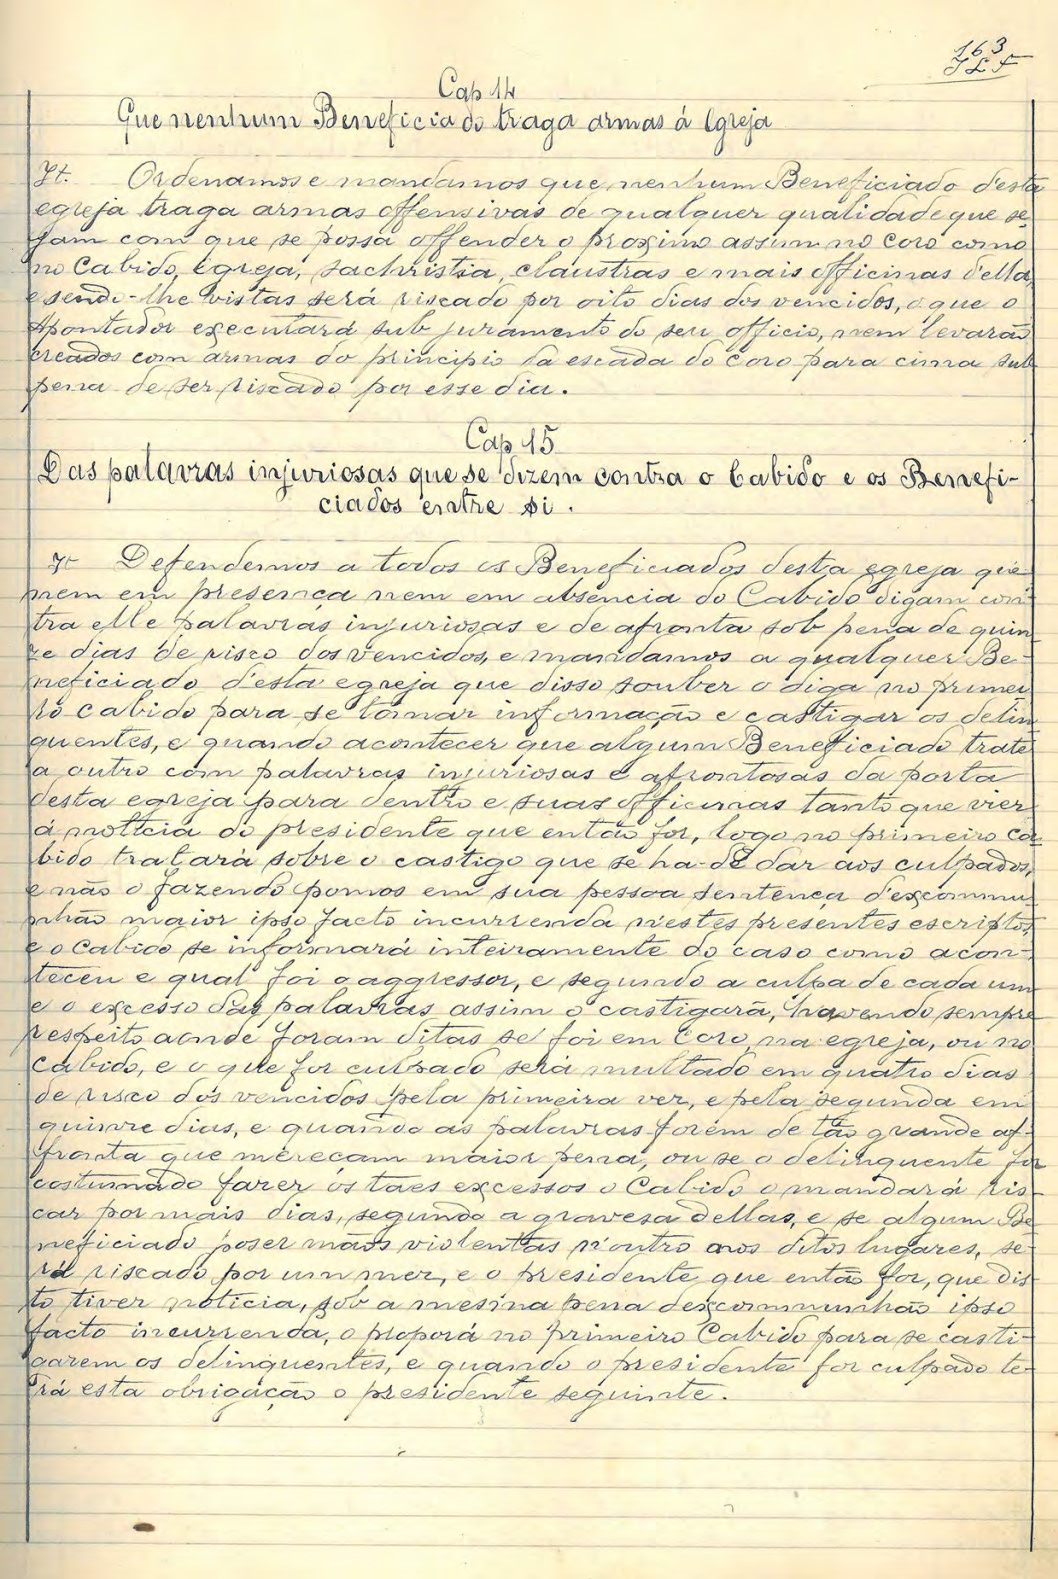 163
JLF
Cap 14
Que nenhum Beneficiado traga armas á Igreja
It. Ordenamos e mandamos que nenhum Beneficiado d'esta
egreja traga armas offensivas de qualquer qualidade que se-
jam com que se possa offender o proximo assim no coro como
no Cabido, egreja, sachristia, claustras e mais officinas della,
e sendo-lhe vistas será riscado por oito dias dos vencidos, o que o
Apontador executará sub juramento do seu officio, nem levarão
creados com armas do principio da escada do coro para cima sub
pena de ser riscado por esse dia.
Cap 15
Das palavras injuriosas que se dizem contra o Cabido e os Benefi-
ciados entre si.
It Defendemos a todos os Beneficiados desta egreja que
nem em presença nem em absencia do Cabido digam con-
tra elle palavras injuriosas e de afronta sob pena de quin-
ze dias de risco dos vencidos, e mandamos a qualquer Be-
neficiado d'esta egreja que disso souber o diga no primei-
ro cabido para se tomar informação e castigar os delin-
quentes, e quando acontecer que algum Beneficiado trate
a outro com palavras injuriosas e afrontosas da porta
desta egreja para dentro e suas officinas tanto que vier
á noticia do presidente que então for, logo no primeiro ca-
bido tratará sobre o castigo que se ha-de dar aos culpados,
e não o fazendo pomos em sua pessoa sentença d'excommu-
nhão maior ipso facto incurrenda n'estes presentes escriptos
e o Cabido se informará inteiramente do caso como acon-
teceu e qual foi o aggressor, e segundo a culpa de cada um
e o excesso das palavras assim o castigará, havendo sempre
respeito aonde foram ditas se foi em Coro, na egreja, ou no
Cabido, e o que for culpado será multado em quatro dias
de risco dos vencidos pela primeira vez, e pela segunda em
quinze dias, e quando as palavras forem de tão grande af-
fronta que mereçam maior pena, ou se o delinquente for
costumado fazer os taes excessos o Cabido o mandará ris-
car por mais dias, segundo a graveza dellas, e se algum Be-
neficiado poser mãos violentas n'outro nos ditos lugares, se-
rá riscado por um mez, e o presidente que então for, que dis-
to tiver noticia, sob a mesma pena dexcommunhão ipso
facto incurrenda, o proporá no primeiro Cabido para se casti-
garem os delinquentes, e quando o presidente for culpado te-
rá esta obrigação o presidente seguinte.